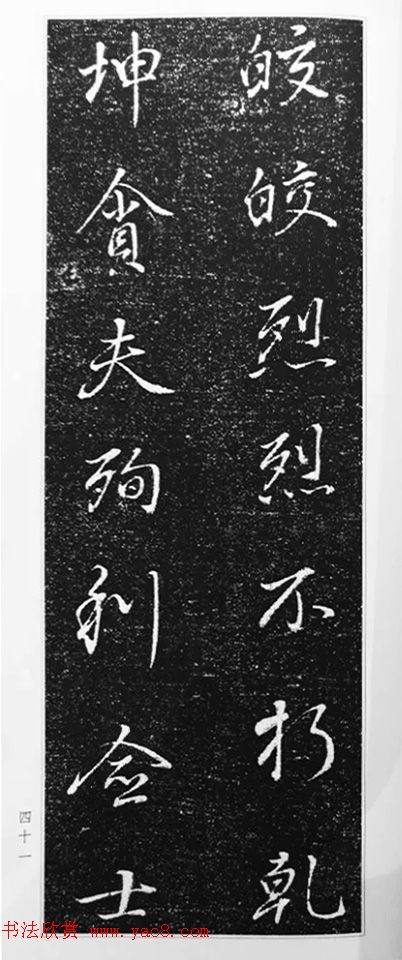 皎皎烈烈不朽乾
坤貪夫殉利念士
四十一
书法欣赏 www.yac8.com